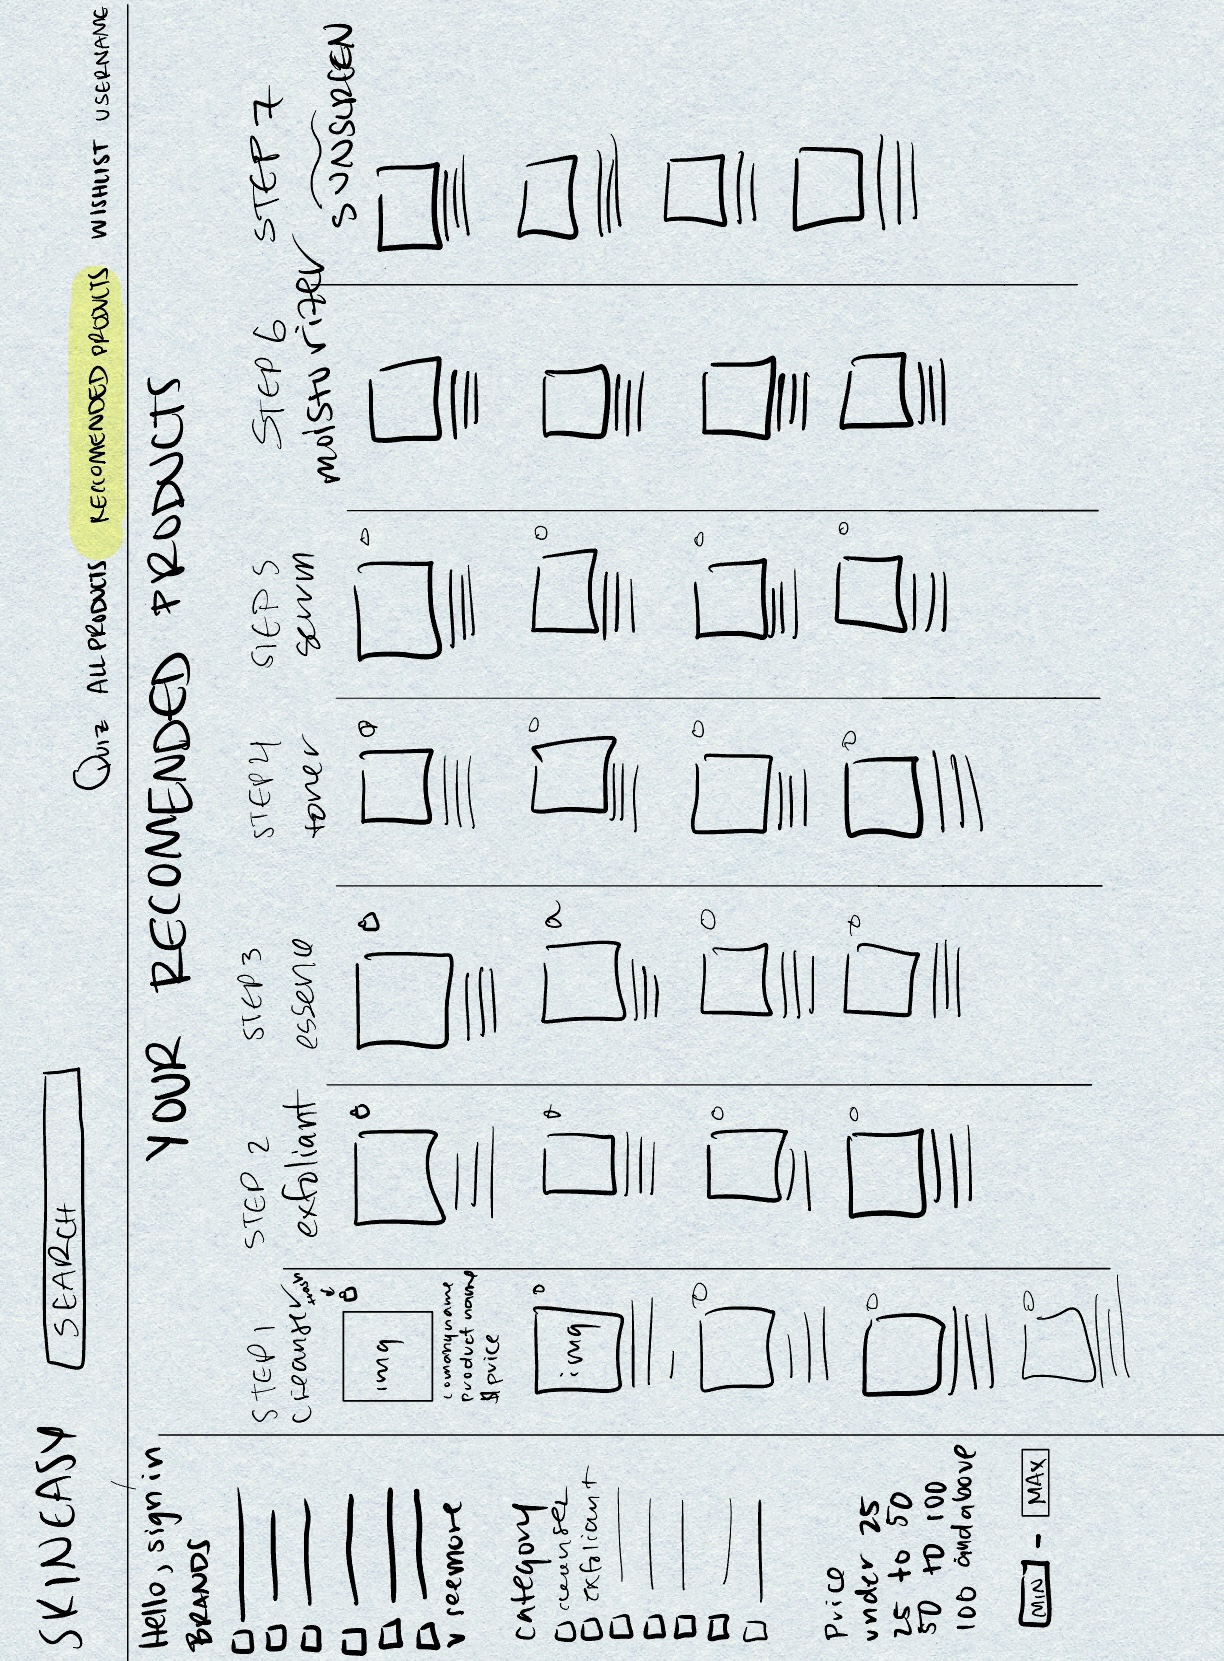 SKINEASY
SEARCH
QUIZ ALL PRODUCTS RECCOMENDED PRODUCTS WISHLIST USERNAME
Hello, sign in
YOUR RECOMENDED PRODUCTS
BRANDS
v seemore
category
cleanser
exfoliant
Price
under 25
25 to 50
50 to 100
100 and above
MIN - MAX
STEP 1
cleanser
trash
img
comany name
product name
$ price
img
STEP 2
exfoliant
STEP 3
essence
STEP 4
toner
STEP 5
serum
STEP 6
moisturizer
STEP 7
SUNSCREEN